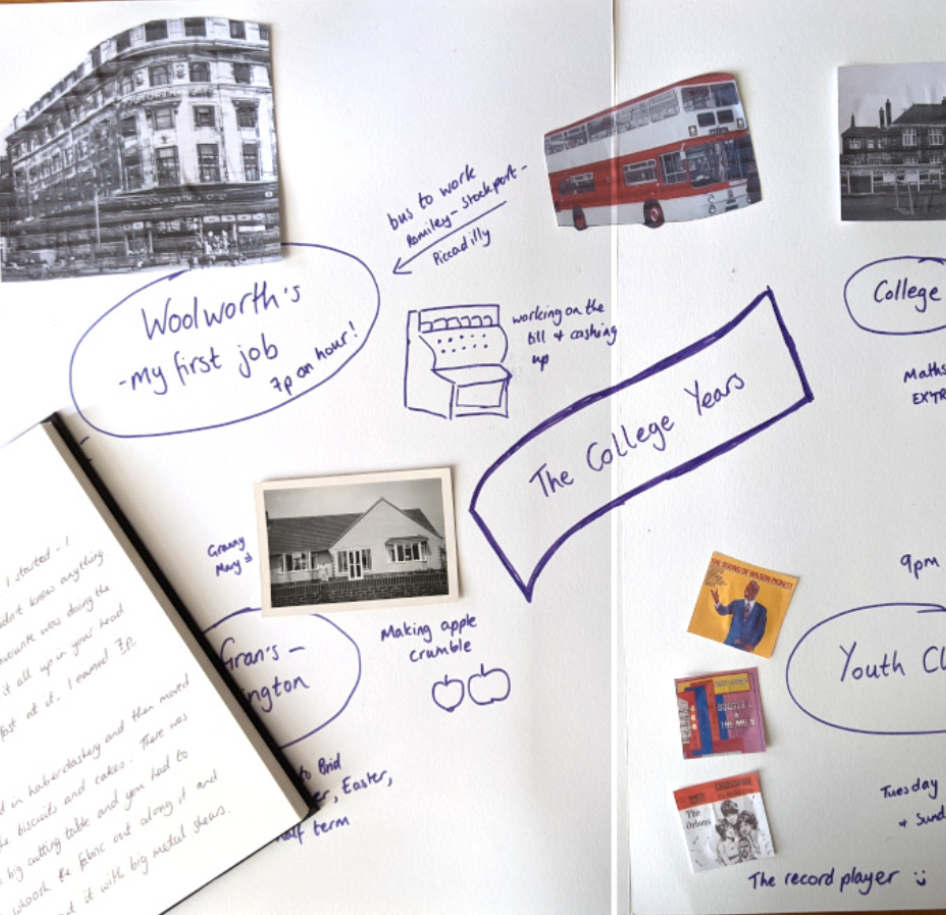 bus to work
Romiley - Stockport -
Piccadilly
Woolworth's
- my first job
7p an hour!
working on the
till & cashing
up
The College Years
College
Maths
EXTR
Granny
May
Gran's -
ington
Making apple
crumble
to Brid
er, Easter,
half term
9pm
Youth Cl
Tuesday
& Sund
The record player
THE SOUND OF WILSON PICKETT
The
Orlons
I started - I
didn't know anything
favourite was doing the
it all up in your head
fast at it. I earned 7p
d in haberdashery and then moved
e biscuits and cakes. There was
big cutting table and you had to
whoosh the fabric out along it and
it with big metal shears.